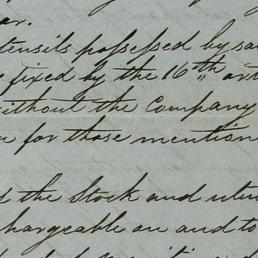 ar.
tensils possessed by sa
fixed by the 16th" art
without the Company
for those mention
the Stock and uten
chargeable on and to